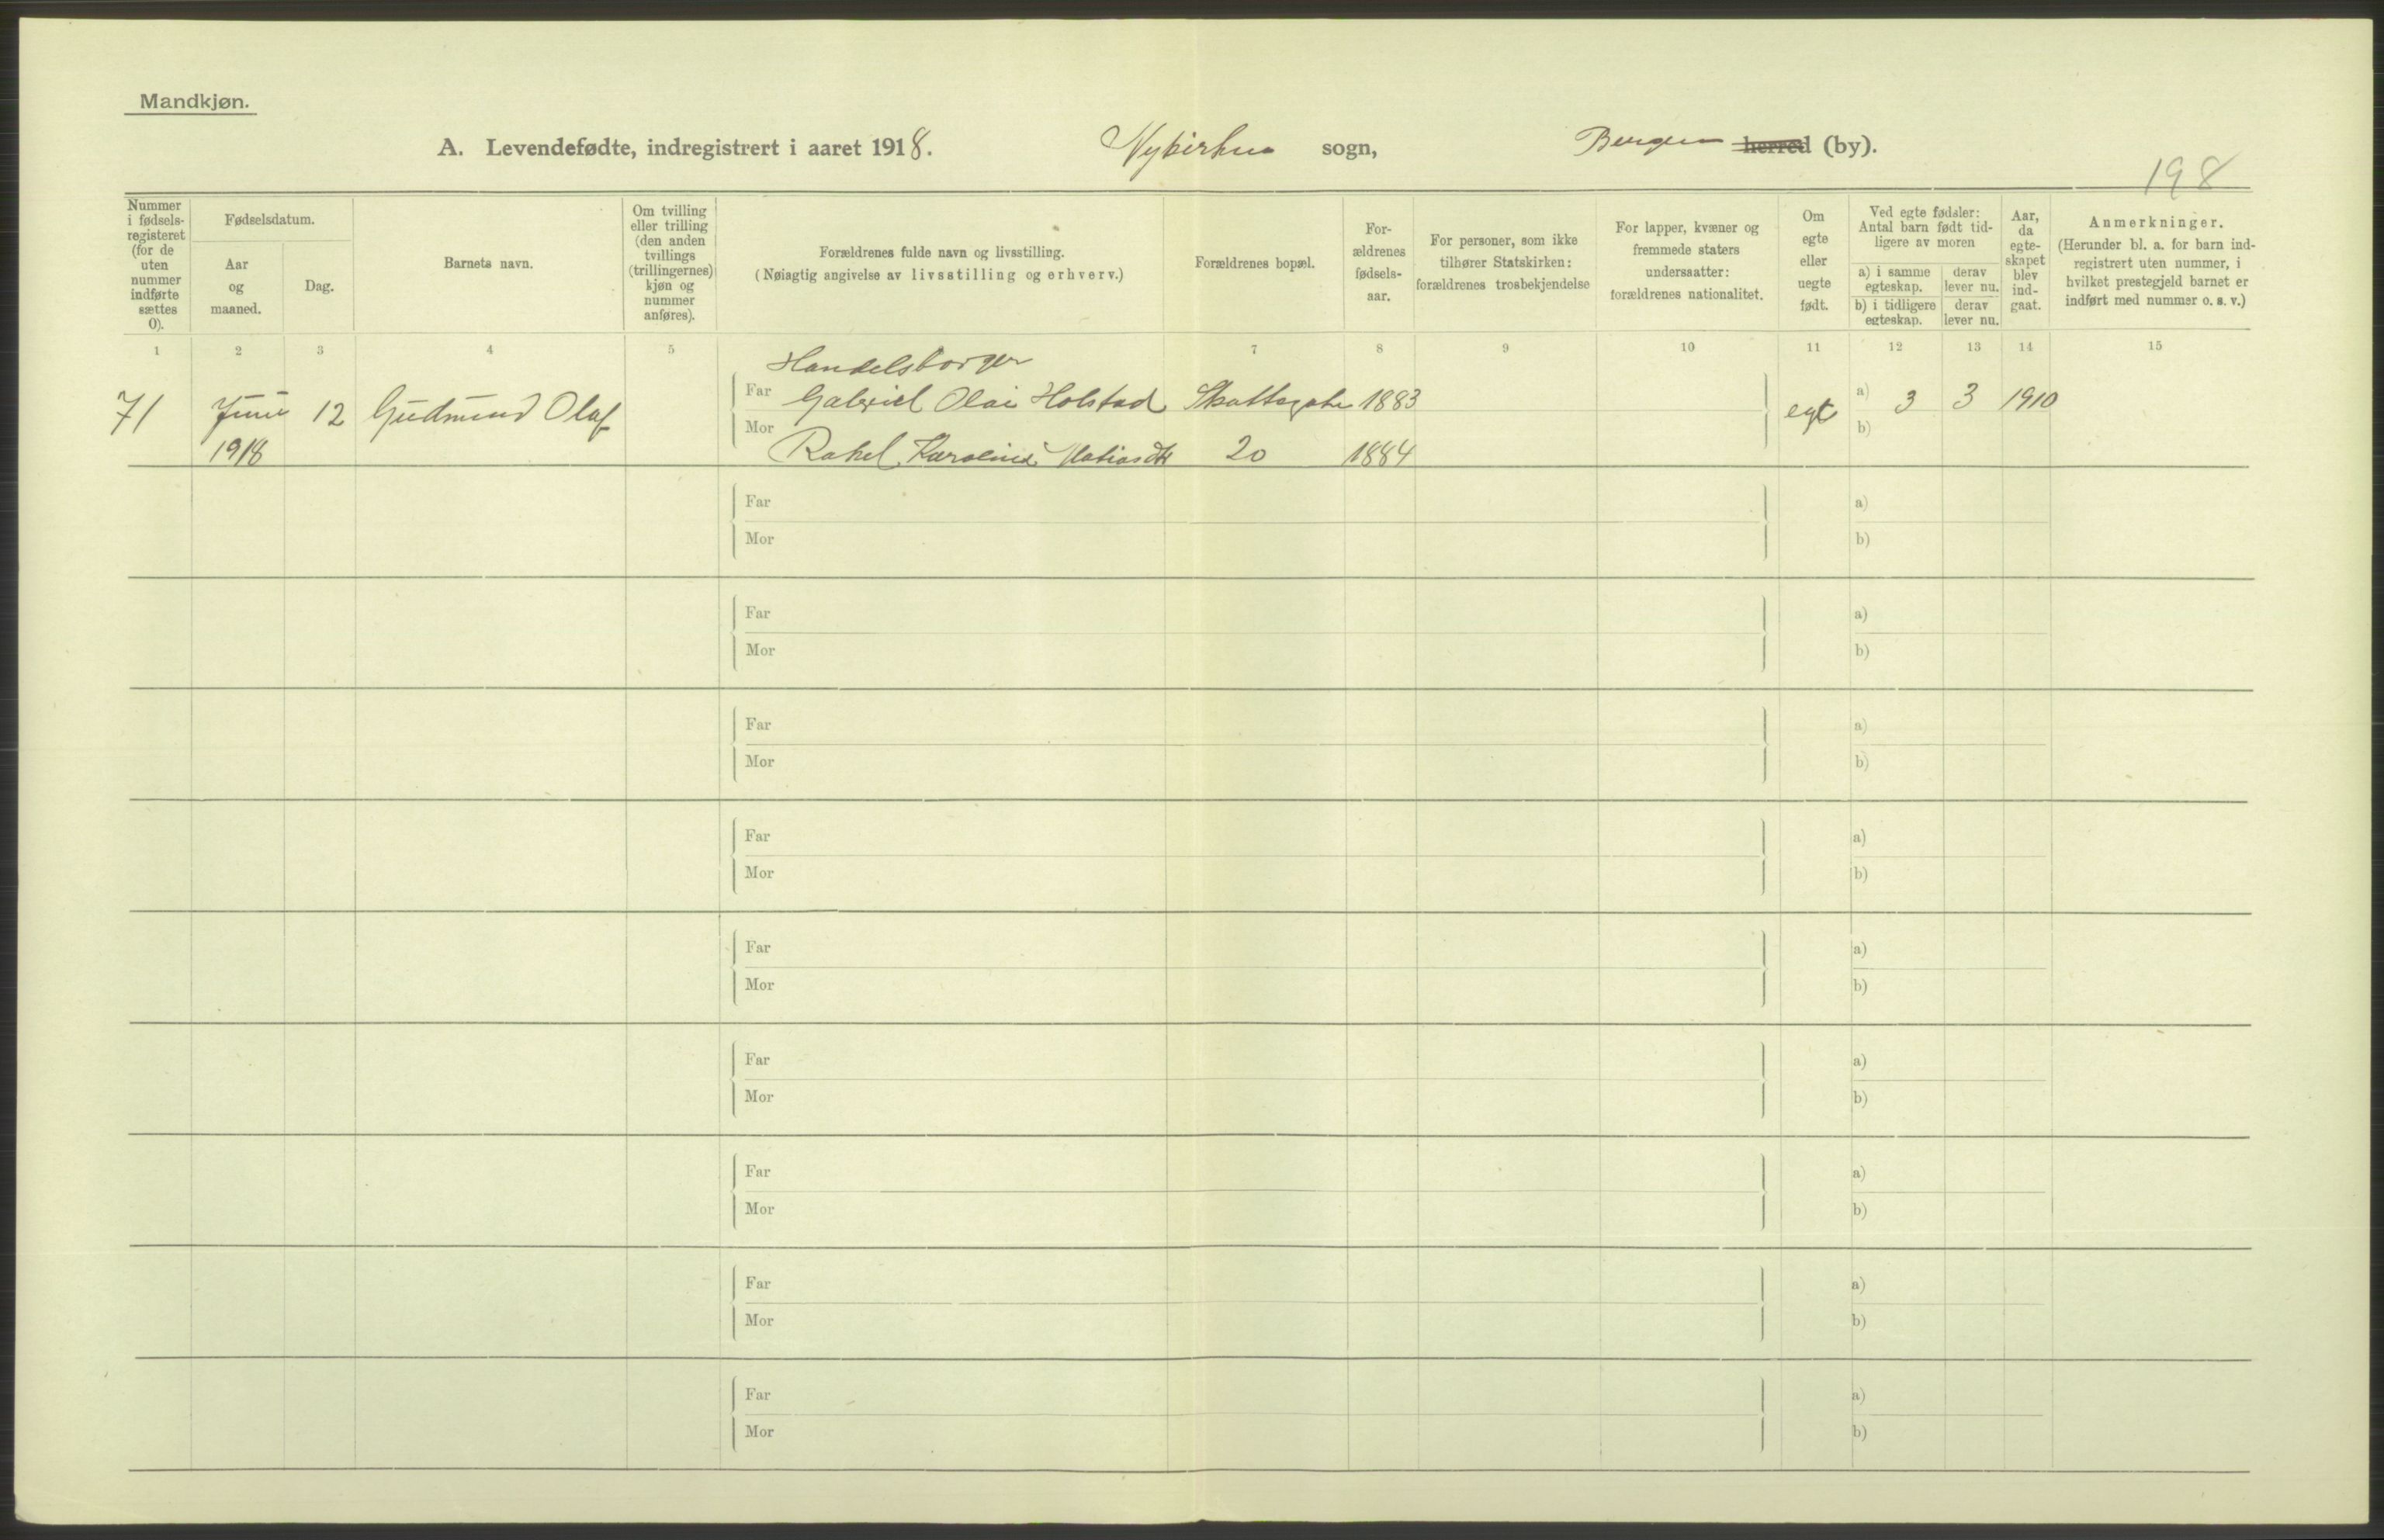 Mandkjøn.
A. Levendefødte, indregistrert i aaret 1918. Nykirken sogn, Bergen herred (by).
198
Nummer i fødsels-registeret (for de uten nummer indførte sættes 0).
Fødselsdatum.
Aar og maaned.
Dag.
Barnets navn.
Om tvilling eller trilling (den anden tvillings (trillingernes) kjøn og nummer anføres).
Forældrenes fulde navn og livsstilling.
(Nøiagtig angivelse av livsstilling og erhverv.)
Forældrenes bopæl.
For-ældrenes fødsels-aar.
For personer, som ikke tilhører Statskirken: forældrenes trosbekjendelse
For lapper, kvæner og fremmede staters undersaatter: forældrenes nationalitet.
Om egte eller uegte født.
Ved egte fødsler: Antal barn født tid-ligere av moren
a) i samme egteskap.
derav lever nu.
b) i tidligere egteskap.
derav lever nu.
Aar, da egte-skapet blev ind-gaat.
Anmerkninger.
(Herunder bl. a. for barn ind-registrert uten nummer, i hvilket prestegjeld barnet er indført med nummer o. s. v.)
1 2 3 4 5 7 8 9 10 11 12 13 14 15
Handelsborger
71 Juni 12 Gudmund Olaf Far Gabriel Olai Holstad Skottegate 1883 egte a) 3 3 1910
1918 Mor Rakel Karoline 20 1884 b)
Far a)
Mor b)
Far a)
Mor b)
Far a)
Mor b)
Far a)
Mor b)
Far a)
Mor b)
Far a)
Mor b)
Far a)
Mor b)
Far a)
Mor b)
Far a)
Mor b)